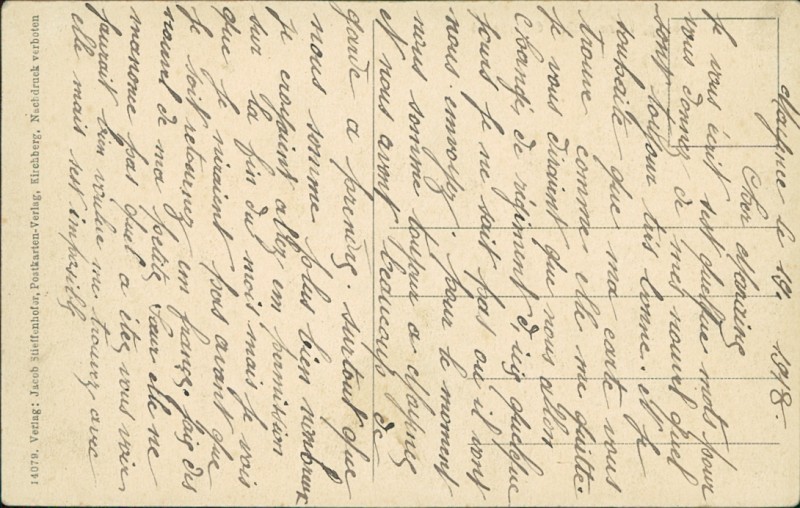 Mayence le 19. 1918.
Cher Marraine
Je vous écrit sest quelque mots pour
vous donnez de mes nouvel quel
sont toujour tres bonne. et je
souhaite que ma carte vous
trouve comme elle me quitte.
je vous dirairt que nous allon
changé de régiment d'ici quelque
jours je ne sait pas ou il vont
nous envoyez. pour le moment
nous somme toujour a Mayence
et nous avont beaucoup de
garde a prendre. surtout que
nous somme plus bien nombreux
je croyaint allez em permission
sur la fin du mois mais je vois
que je niraient pas avant que
je soit retournez em france. jaie des
nouvel de ma petite Sœur elle ne
manonce pas quel a étez vous voir
jaurait bien voulue me trouvez avec
elle mais sest imposible
14079. Verlag: Jacob Stieffenhofer, Postkarten-Verlag, Kirchberg. Nachdruck verboten